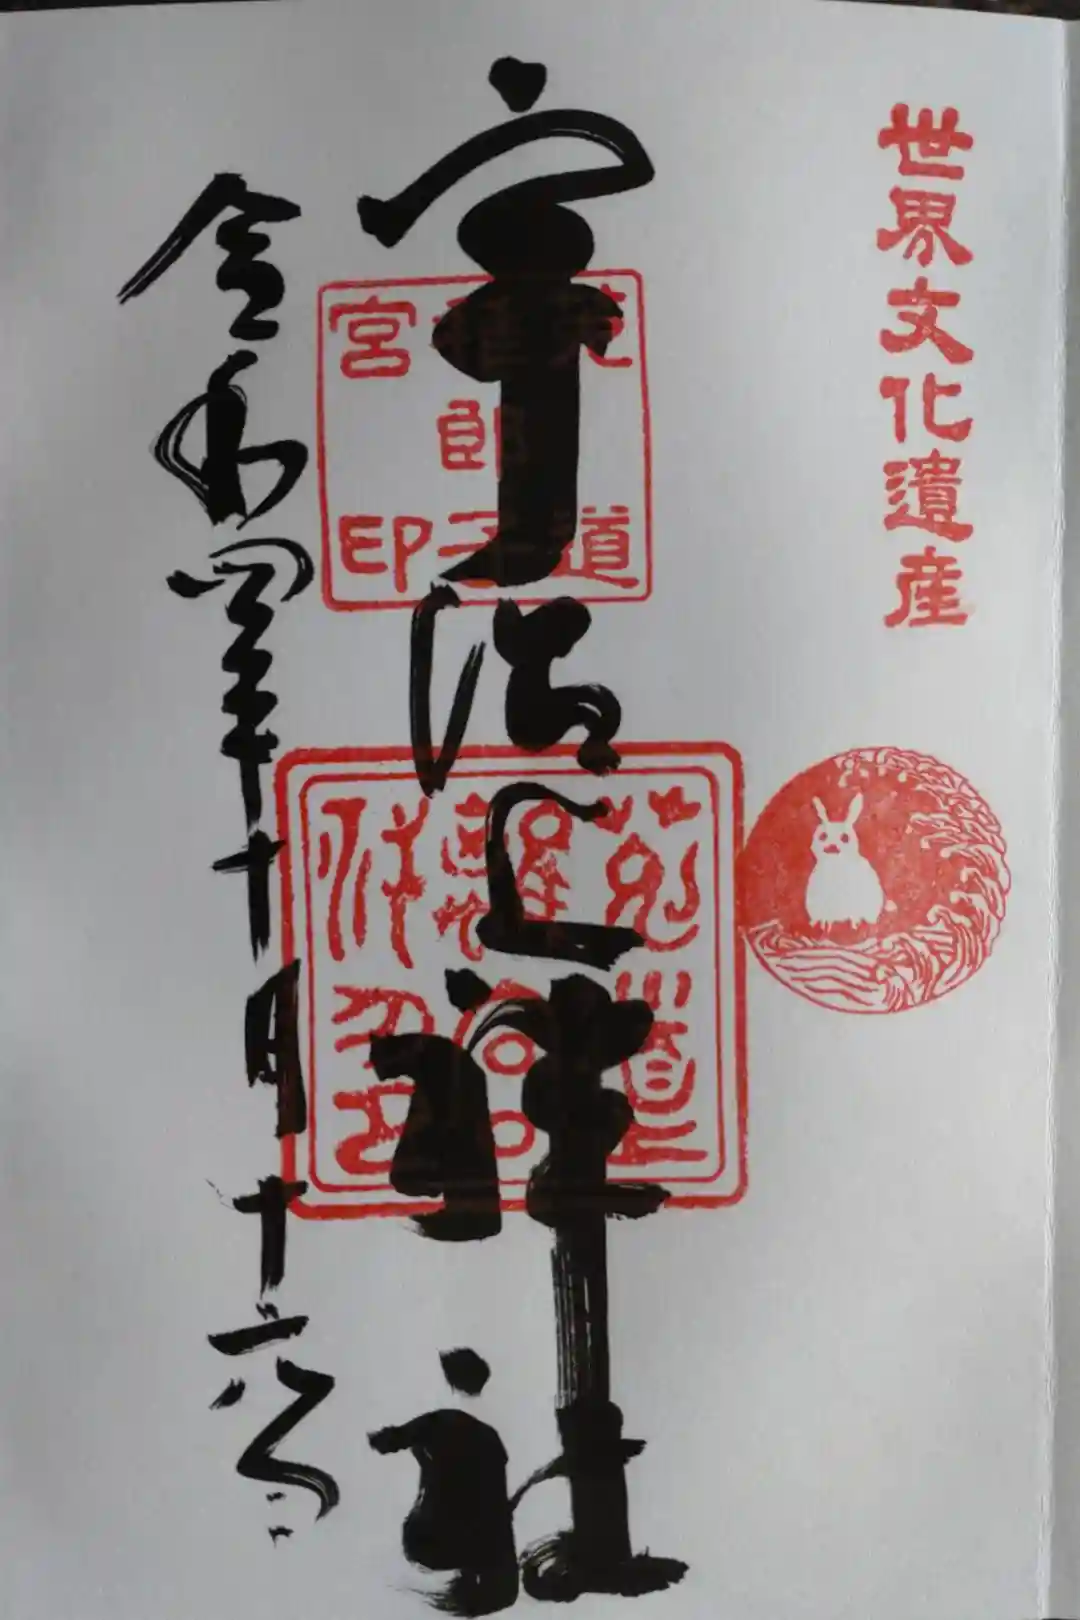 世界文化遺産
宇治上神社
菟道
稚郎子
宮印
令和四年十月十六日